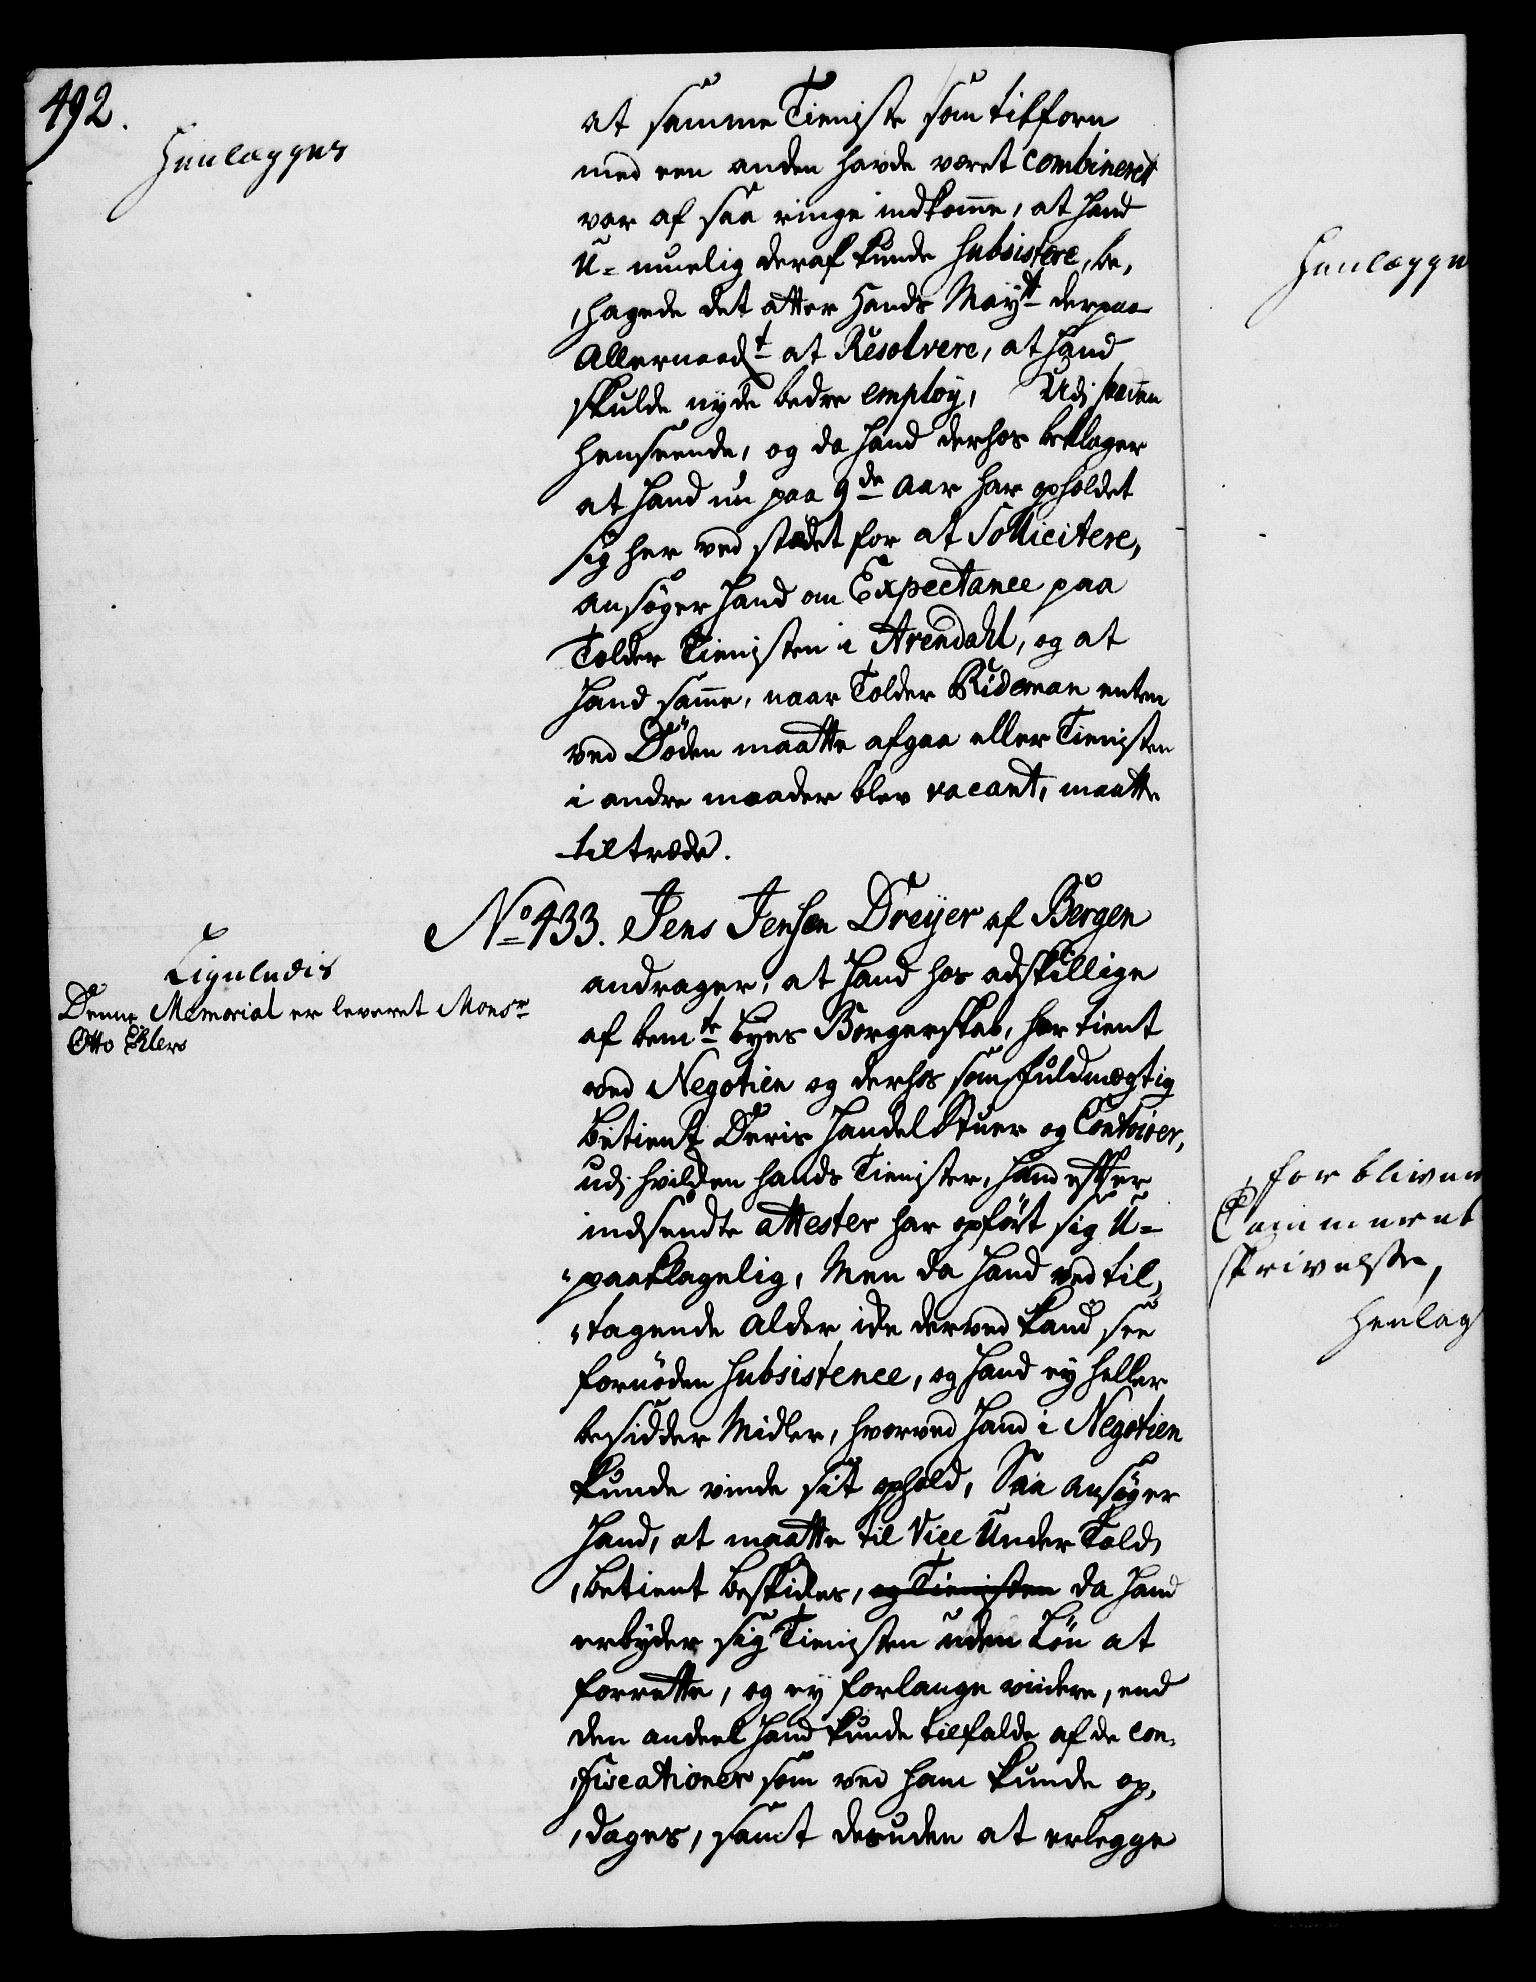 492.
Henlægges
at samme Tieniste som tilforn
med een anden havde været combineret
var af saa ringe indkomme, at hand
U-muelig deraf kunde subsistere, be-
hagede det atter Hands Mayt derpaa
Allernaadt at Resolvere, at hand
skulde nyde bedre employ, Udi saadan
henseende, og da hand derhos beklager
at hand nu paa 9de Aar har opholdet
sig her ved stædet for at Sollicitere,
ansøger hand om Expectance paa
Tolder Tienisten i Arendahl, og at
hand samme, naar Tolder Rideman enten
ved Döden maatte afgaa eller Tienisten
i andre maader blev vacant, maatte
tiltræde.
No 433. Jens Jensen Dreyer af Bergen
Ligeledis
Denne Memorial er leveret Monsr
Otto Ehlers
andrager, at hand hos adskillige
af bemte byes Borgerskab, har tient
ved Negotien og derhos som fuldmægtig
betient Deris Handel Stuer og Contoirer,
udj hvilken hands Tienister, hand efter
indsendte attester har opført sig U-
paaklagelig, Men da hand ved til-
tagende Alder icke derved kand see
fornöden Subsistence, og hand ey heller
besidder Midler, hvorved hand i Negotien
kunde vinde sit ophold, Saa ansøger
hand, at maatte til Vice Under Told
betient beskickes, og Tienisten da hand
erbyder sig Tienisten uden Lön at
forrette, og ey forlange videre, end
den andeel hand kunde tilfalde af de con-
fiscationer som ved ham kunde op-
dages, samt desuden at erlegge
Henlægge
forbliver
Cammerets
skrivelse,
Henlag